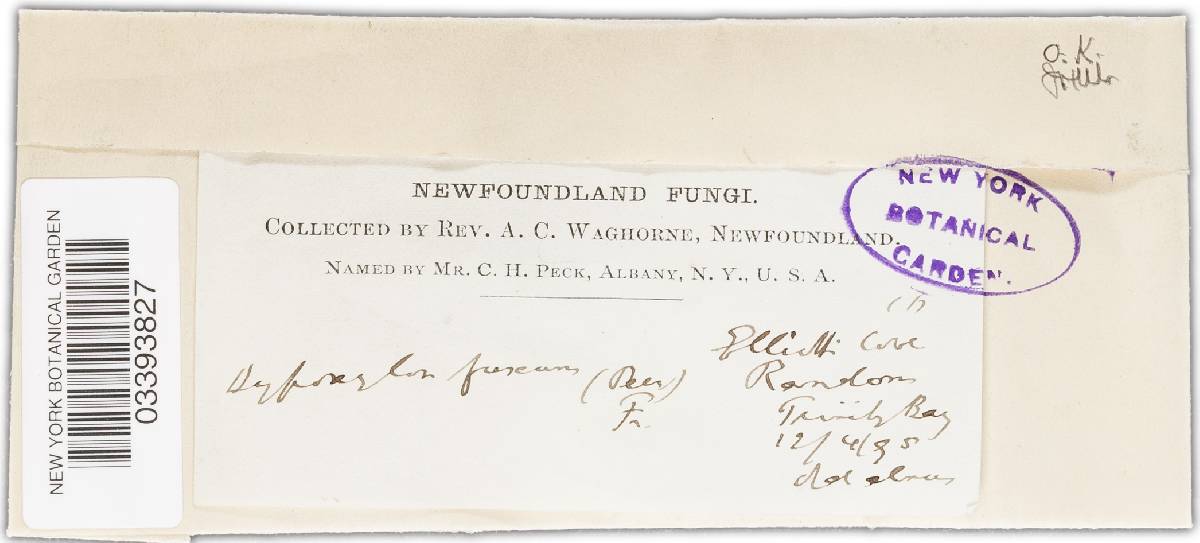 O. K.
NEW YORK BOTANICAL GARDEN
03393827
NEWFOUNDLAND FUNGI.
COLLECTED BY REV. A. C. WAGHORNE, NEWFOUNDLAND.
NAMED BY MR. C. H. PECK, ALBANY, N. Y., U. S. A.
NEW YORK
BOTANICAL
GARDEN.
Hypoxylon fuscum (Pers)
Fr.
Elliotts Cove
Random
Trinity Bay
12/4/95